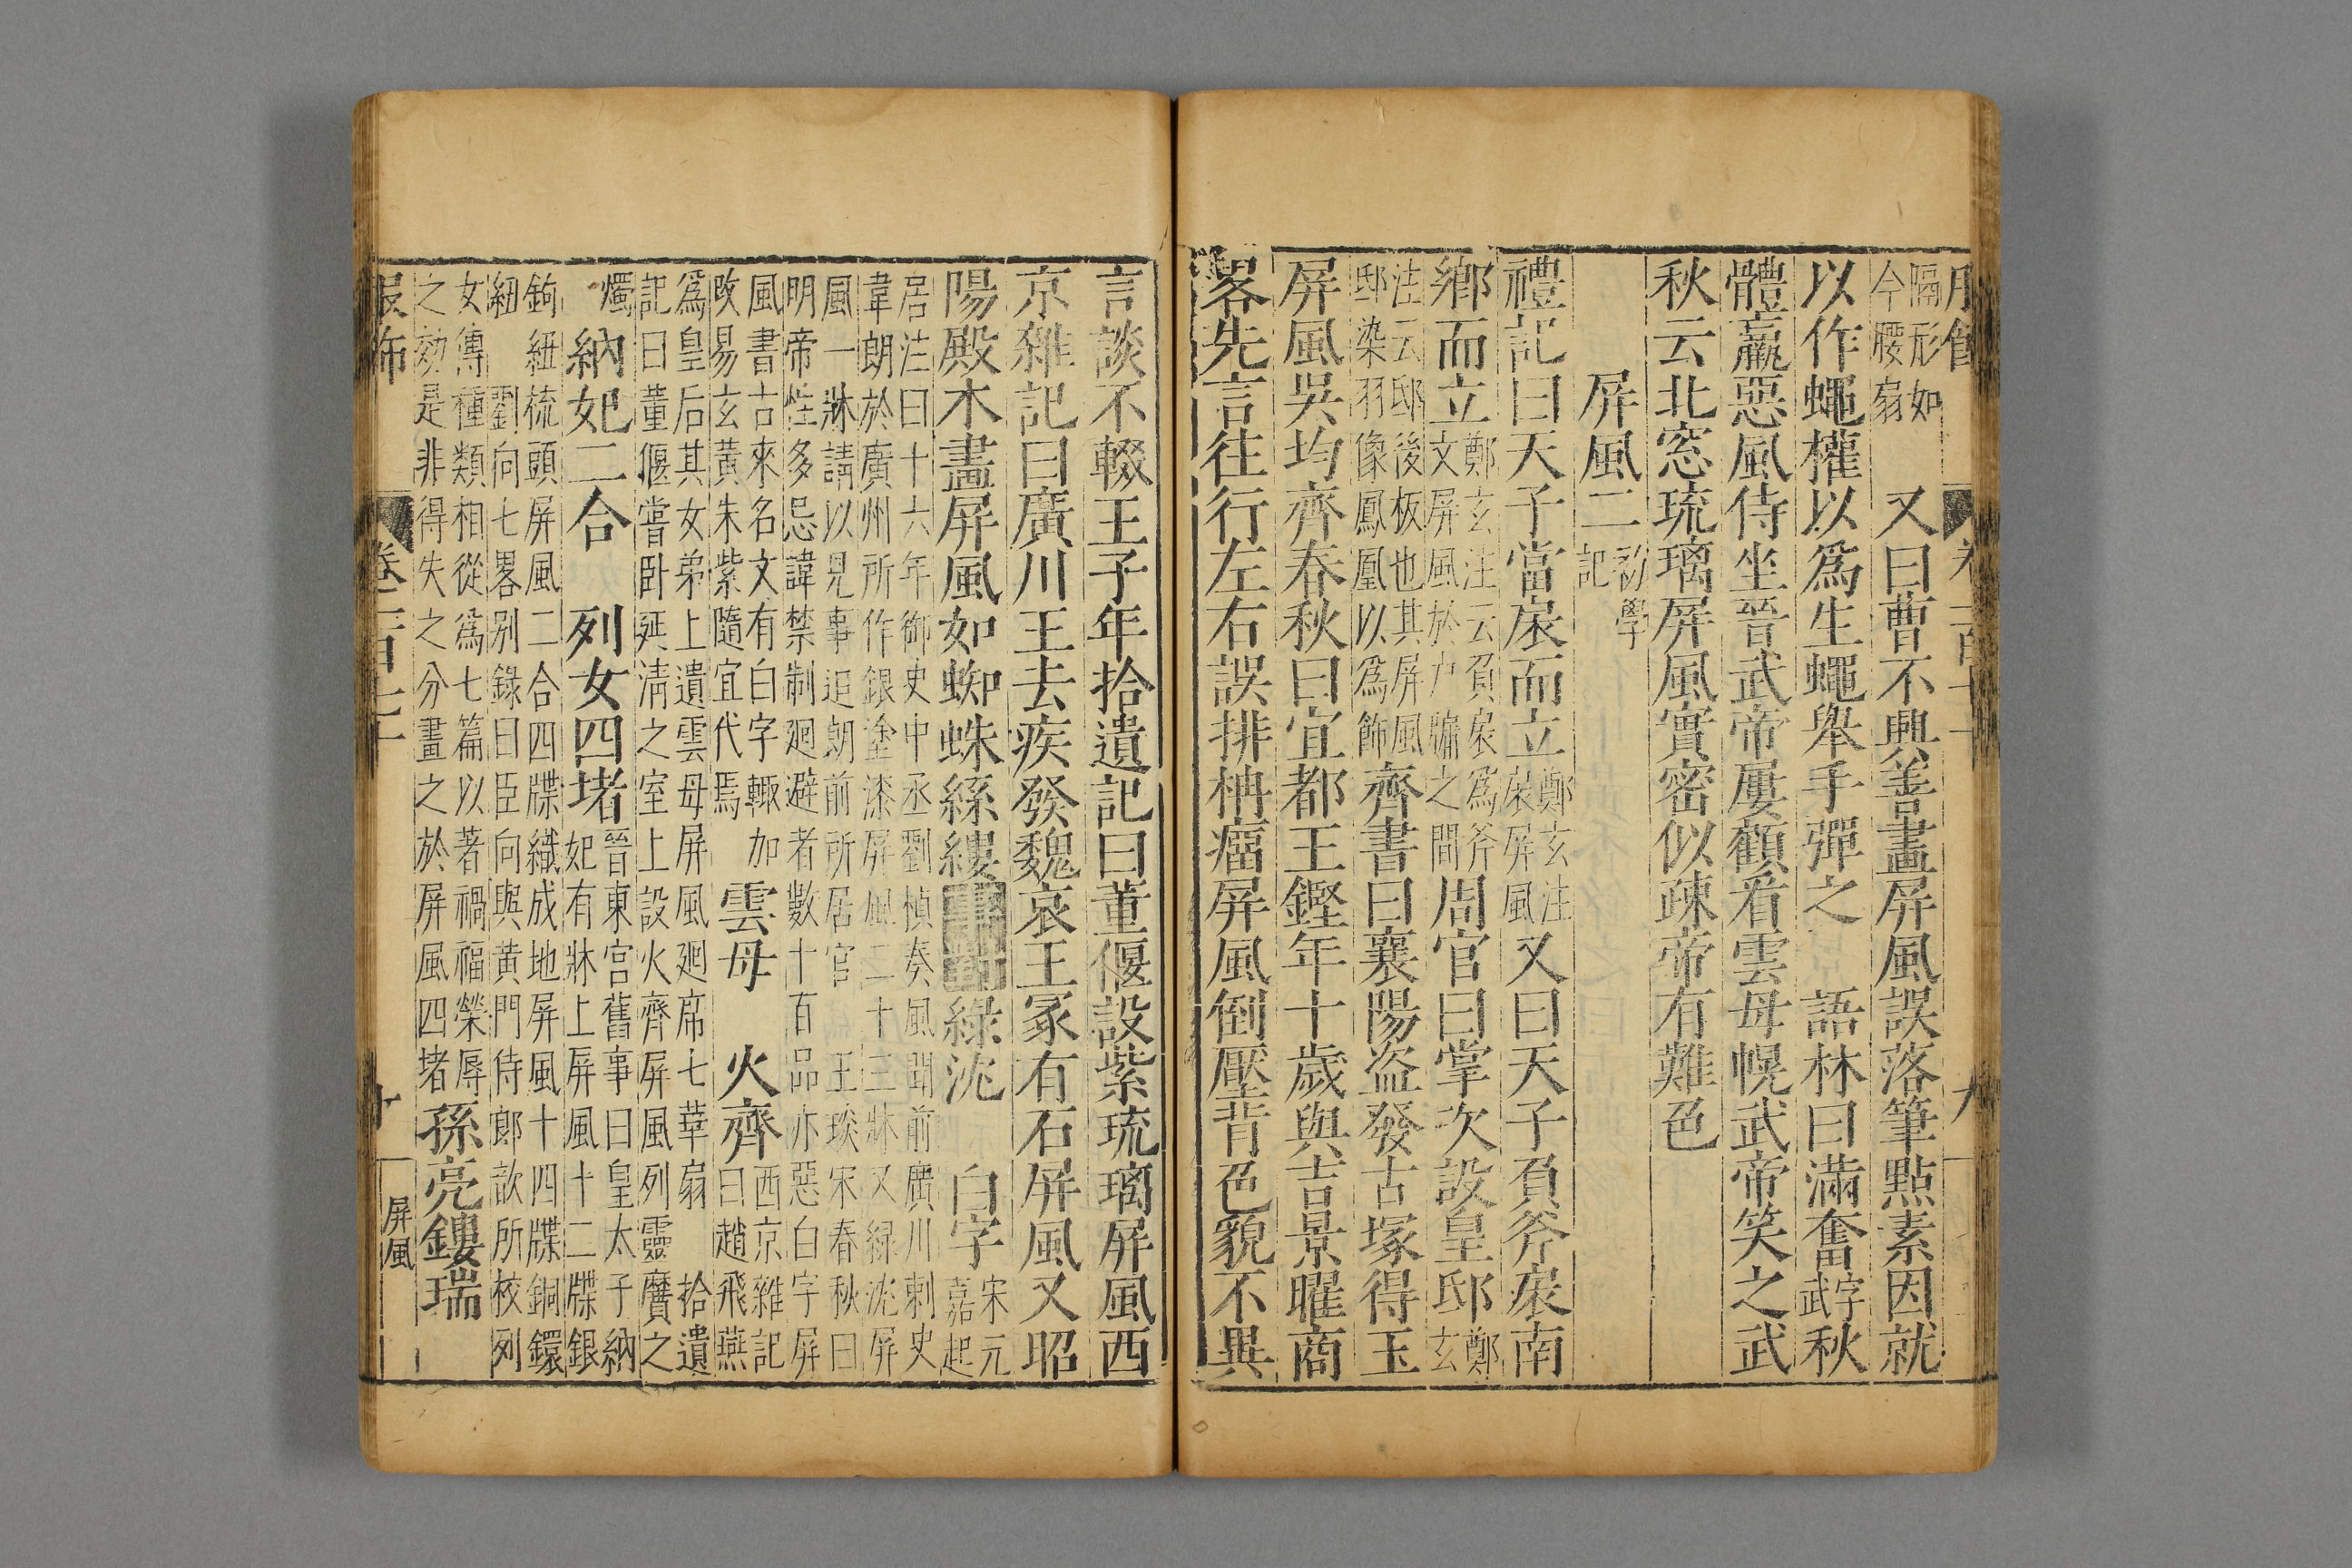 服飾 卷二百十 九
隔形如
今腰扇
又曰曹不興善畫屏風誤落筆點素因就
以作蠅權以爲生蠅舉手彈之 語林曰滿奮字
武秋
體羸惡風侍坐晉武帝屢顧看雲母幌武帝笑之武
秋云北窓琉璃屏風實密似疎帝有難色
屏風二
初學
記
禮記曰天子當扆而立
鄭玄注
扆屏風
又曰天子負斧扆南
鄉而立
鄭玄注云負扆爲斧
文屏風於戶牖之間
周官曰掌次設皇邸
鄭
玄
注云邸後板也其屏風
邸染羽像鳳凰以爲飾
齊書曰襄陽盜發古塚得玉
屏風吳均齊春秋曰宜都王鏗年十歲與吉景曜商
畧先言往行左右誤排柟瘤屏風倒壓背色貌不異
言談不輟王子年拾遺記曰董偃設紫琉璃屏風西
京雜記曰廣川王去疾發魏哀王冢有石屏風又昭
陽殿木畫屏風如蜘蛛絲縷
綠沈 白字
宋元
嘉起
居注曰十六年御史中丞劉楨奏風聞前廣川刺史
韋朗於廣州所作銀塗漆屏風二十三牀又綠沈屏
風一牀請以見事追朗前所居官 王琰宋春秋曰
明帝性多忌諱禁制迴避者數十百品亦惡白字屏
風書古來名文有白字輙加
改易玄黃朱紫隨宜代焉
雲母 火齊
西京雜記
曰趙飛燕
爲皇后其女弟上遺雲母屏風廻席七華扇 拾遺
記曰董偃嘗卧延清之室上設火齊屏風列靈麞之
燭
納妃二合 列女四堵
晉東宮舊事曰皇太子納
妃有牀上屏風十二牒銀
鉤紐梳頭屏風二合四牒織成地屏風十四牒銅鐶
紐 劉向七畧别錄曰臣向與黃門侍郎歆所校列
女傳種類相從爲七篇以著禍福榮辱
之効是非得失之分畫之於屏風四堵
孫亮鏤瑞
服飾 卷二百七十 十 屏風